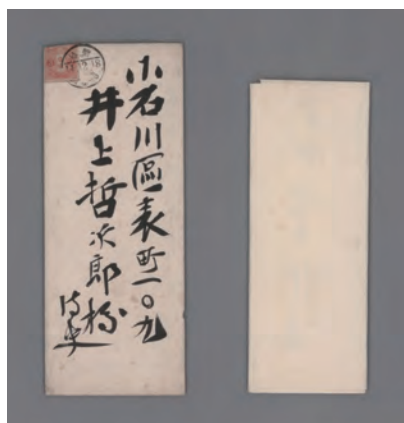 小石川區表町一〇九
井上哲次郎様
侍史